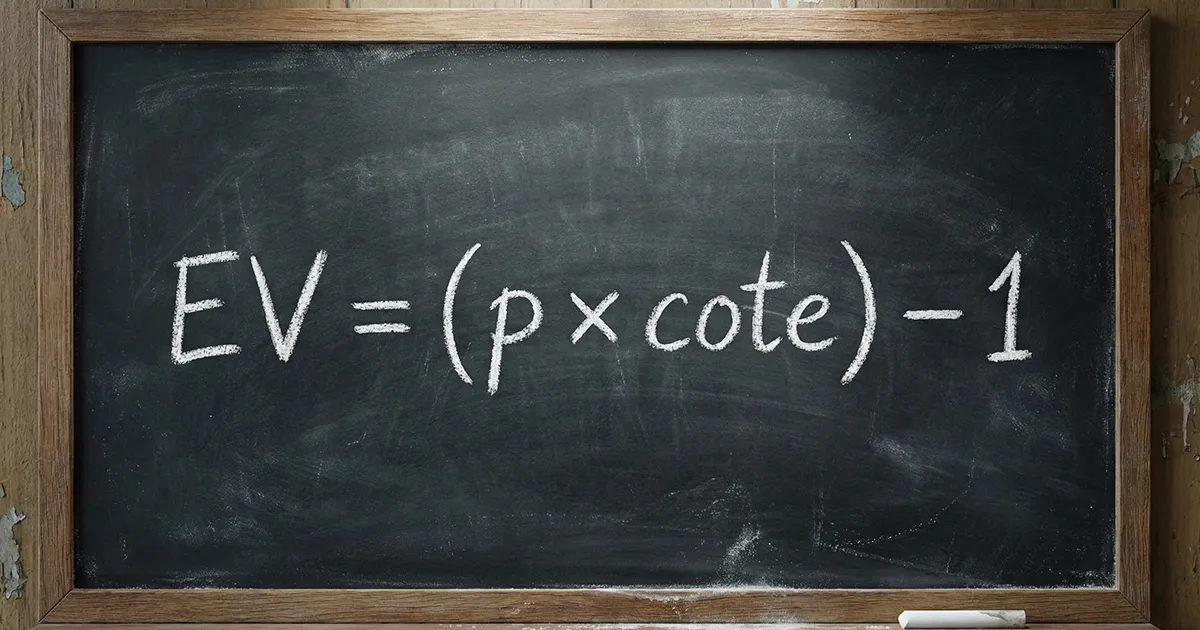 EV = (p × cote) − 1